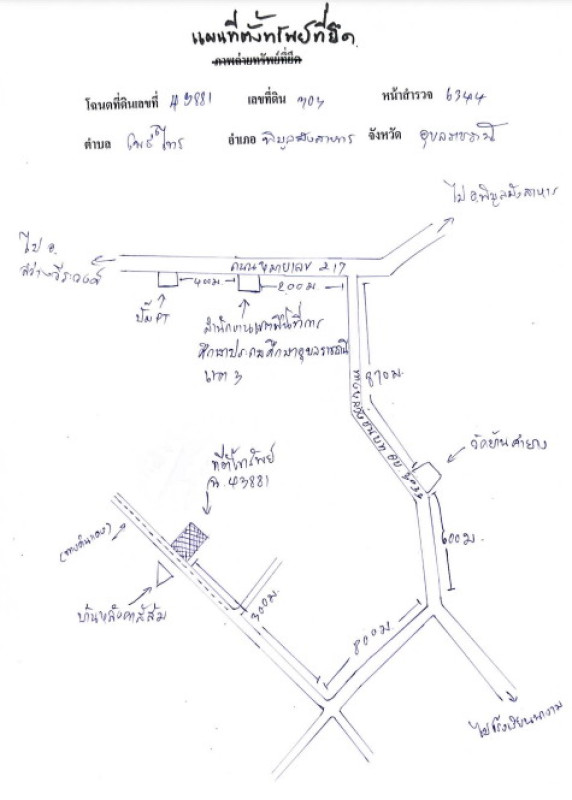 แผนที่ตั้งทรัพย์ที่ยึด
ภาพถ่ายทรัพย์ที่ยึด
โฉนดที่ดินเลขที่ 43881 เลขที่ดิน 707 หน้าสำรวจ 6344
ตำบล โพธิ์ไทร อำเภอ พิบูลมังสาหาร จังหวัด อุบลราชธานี
ไป อ.พิบูลมังสาหาร
ไป อ.
สว่างวีระวงศ์
ถนนหมายเลข 217
400ม.
200ม.
ปั๊ม PT
สำนักงานเขตพื้นที่การ
ศึกษาประถมศึกษาอุบลราชธานี
เขต 3
870ม.
ทางหลวงชนบท อบ
วัดบ้านสำราญ
ที่ตั้งทรัพย์
ฉ.43881
600ม.
(ทางดินแดง)
บ้านหลังคาสีส้ม
300ม.
800ม.